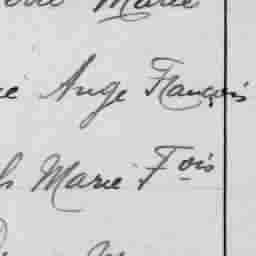 Marie
Ange François
Marie Fois